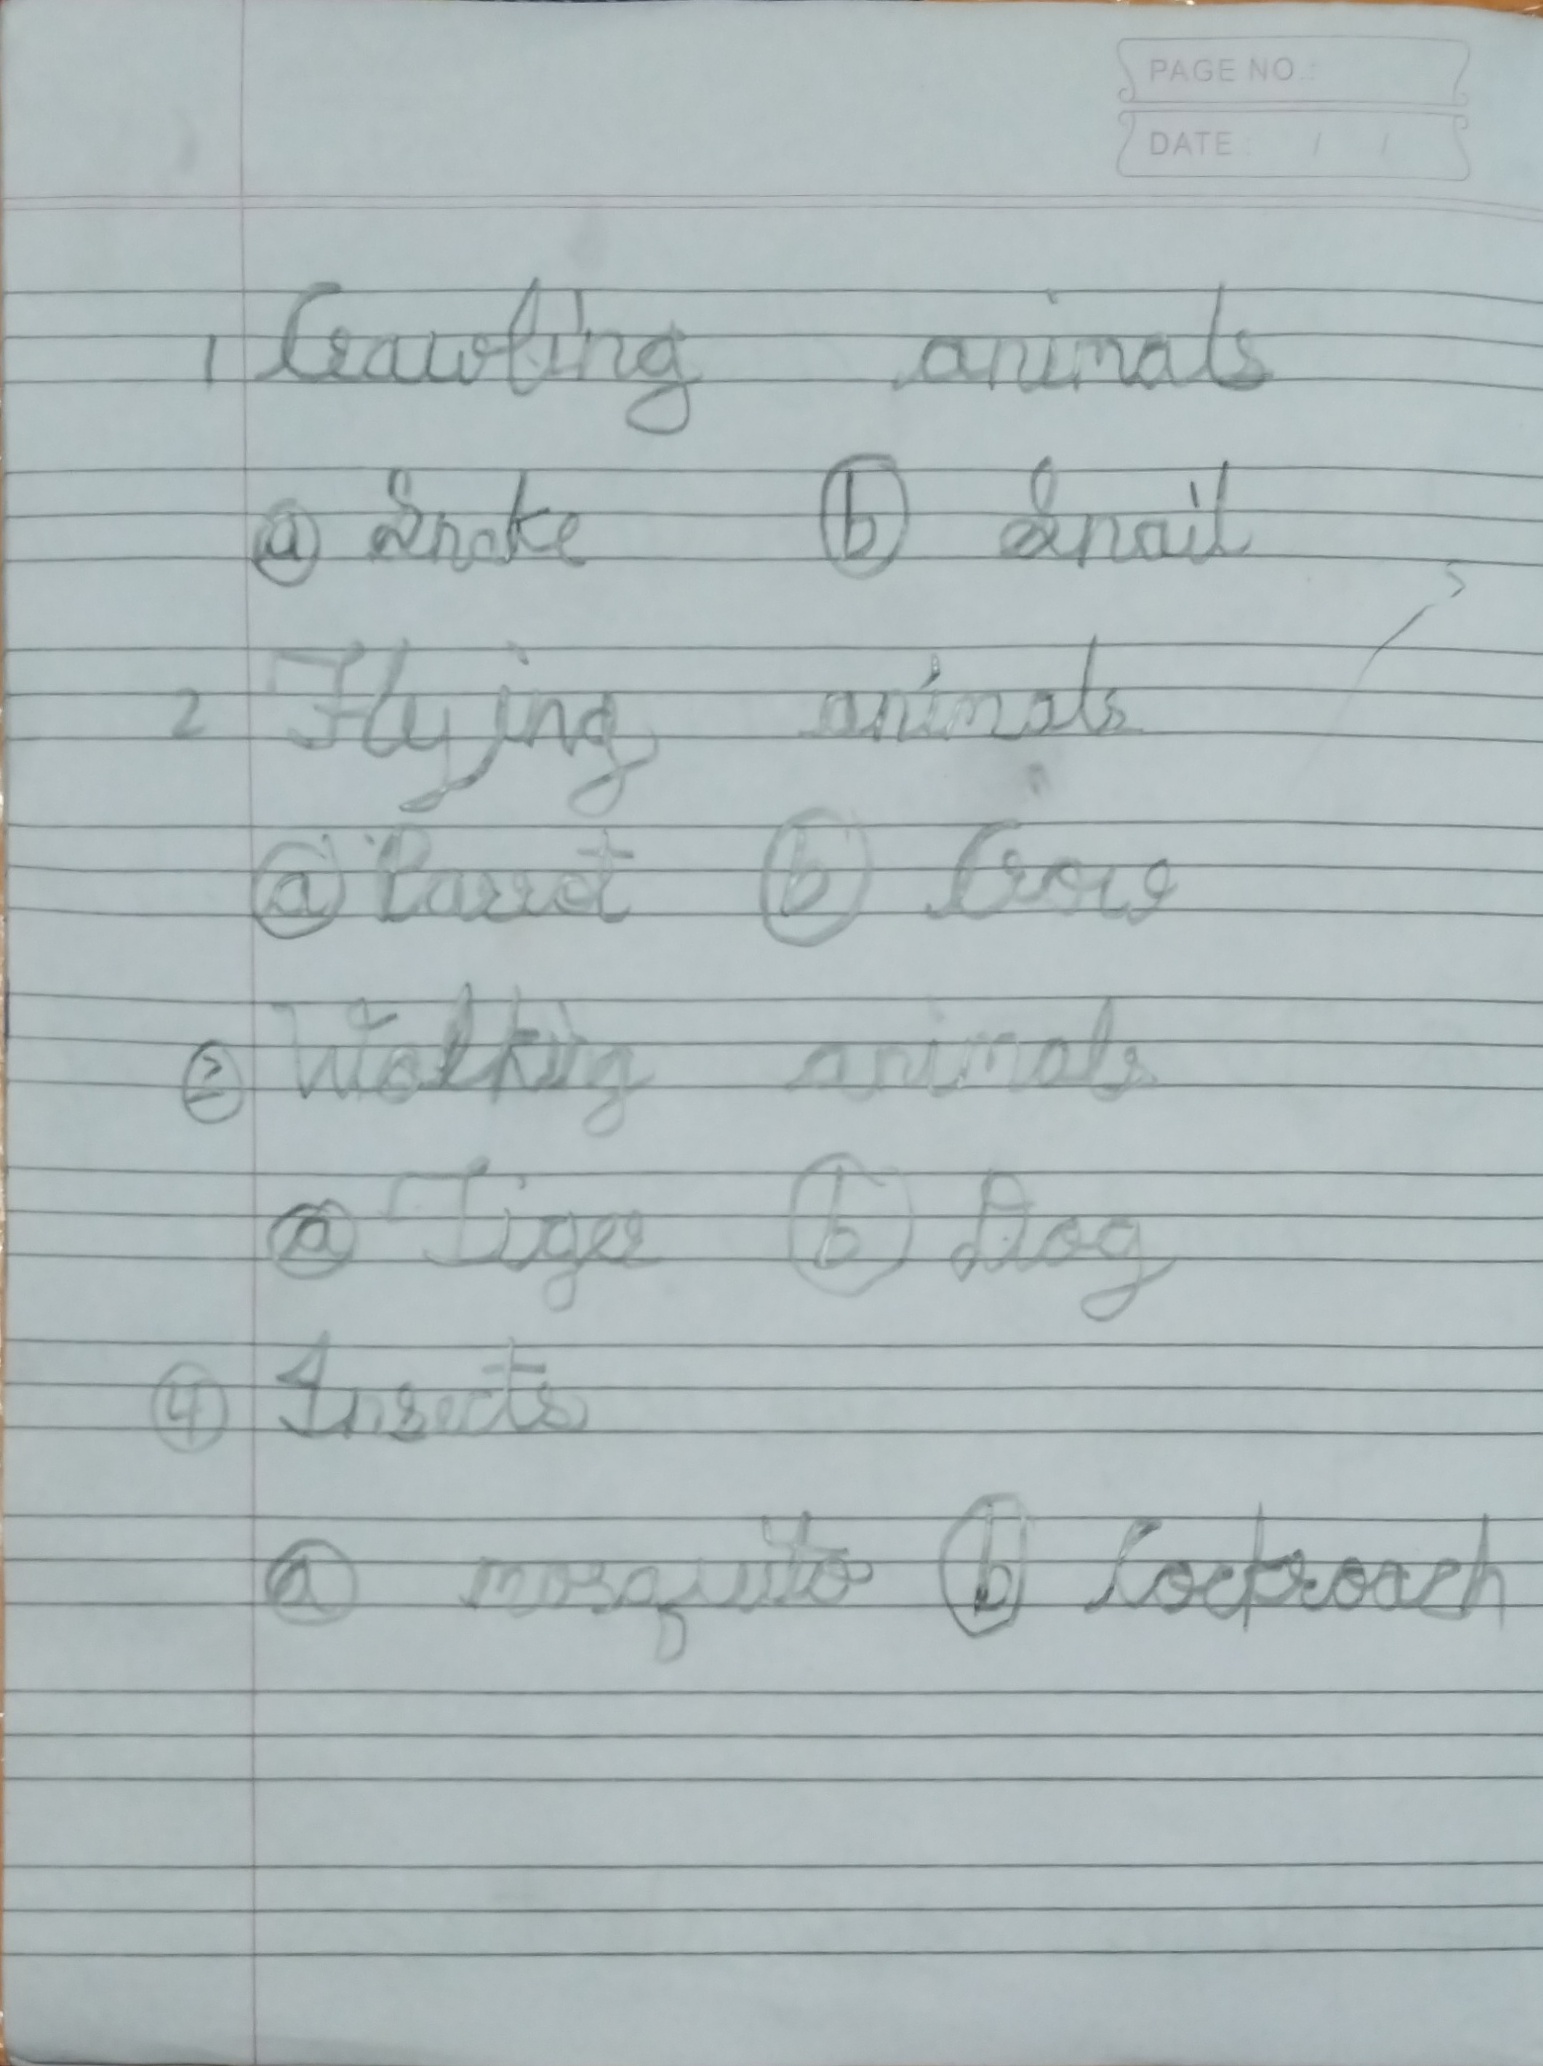 PAGE NO.:
DATE: / /
1 Crawling animals
a Snake b Snail
2 Flying animals
a Parrot b Crow
3 Walking animals
a Tiger b Dog
4 Insects
a mosquito b Cockroach